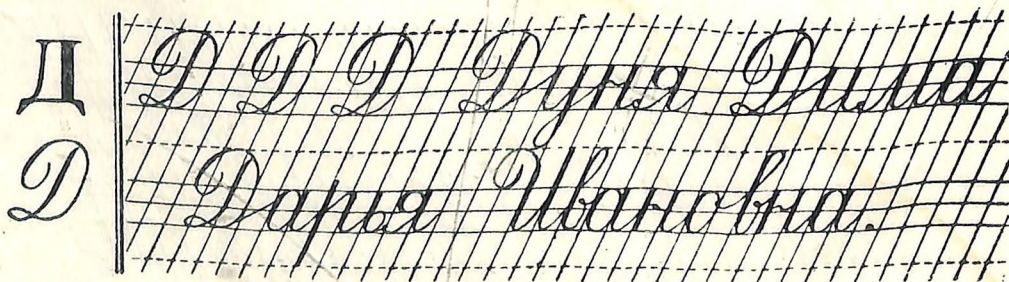 Д Д Д Д Дуня Дима
Д Дарья Ивановна.